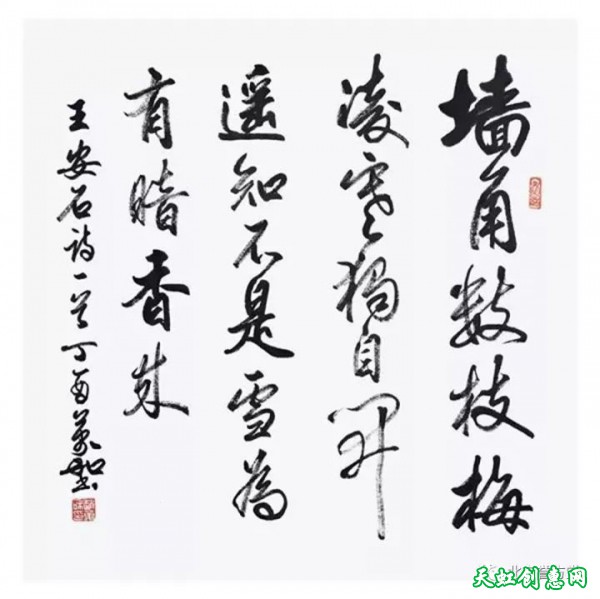 墙角数枝梅
凌寒獨自開
遥知不是雪為
有暗香来
王安石诗一首丁酉
天虹创意网